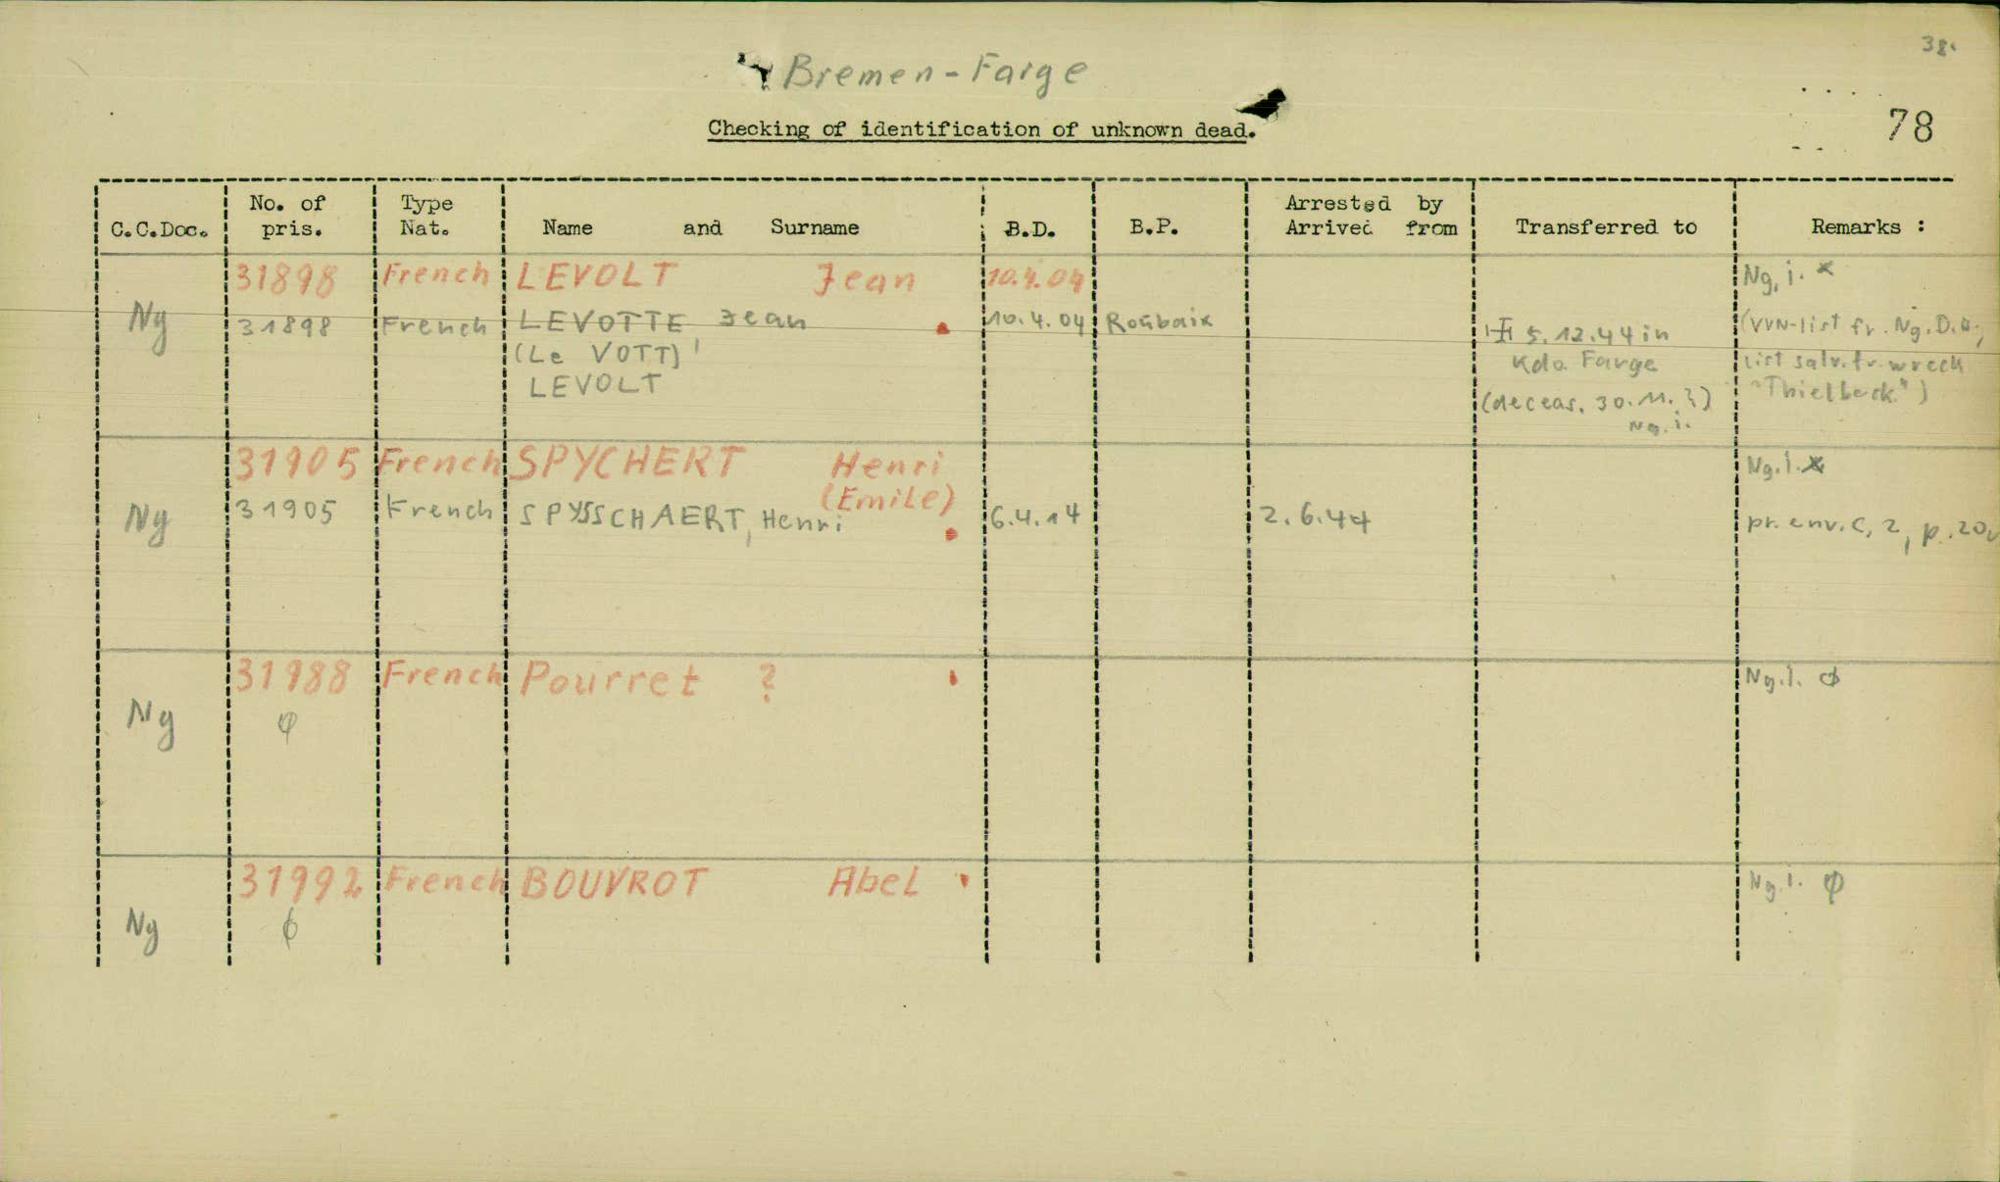 38.
Bremen-Farge
Checking of identification of unknown dead.
78
C.C.Doc. No. of pris. Type Nat. Name and Surname B.D. B.P. Arrested by Arrived from Transferred to Remarks :
31898 French LEVOLT Jean 10.4.04 Ng.i. x
Ng 31898 French LEVOTTE Jean 10.4.04 Roubaix 5.12.44 in (VVN-list fr. Ng.
(Le VOTT) Kdo. Farge list salv. fr. wreck
LEVOLT (deceas. 30.11.?) "Thielbeck")
Ng.i.
31905 French SPYCHERT Henri Ng.i. x
(Emile)
Ng 31905 French SPYSSCHAERT, Henri 6.4.14 2.6.44 pr. env. C, 2, p. 20
31988 French Pourret ? Ng.i. φ
Ng φ
31992 French BOUVROT Abel Ng.i. φ
Ng φ